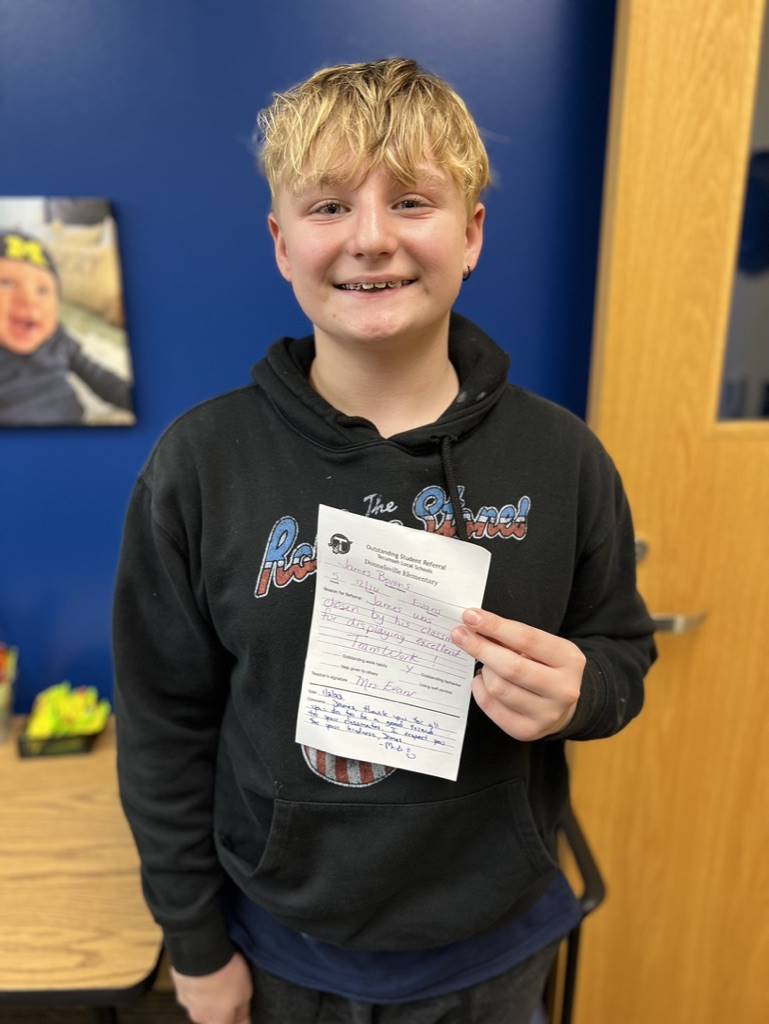 M
The
Rolling Stones
Outstanding Student Referral
Tecumseh Local Schools
Donnelsville Elementary
James Bevens Evans
5 12/14
Reason for Referral: James was
chosen by his classmates
for displaying excellent
Teamwork!
Outstanding work habits Outstanding behavior
Help given to others Using self control
Teacher's signature Mrs. Evans
Date
Comments: James, thank you for all
you do to be a good friend
to your classmates. I respect you
for your kindness, James.